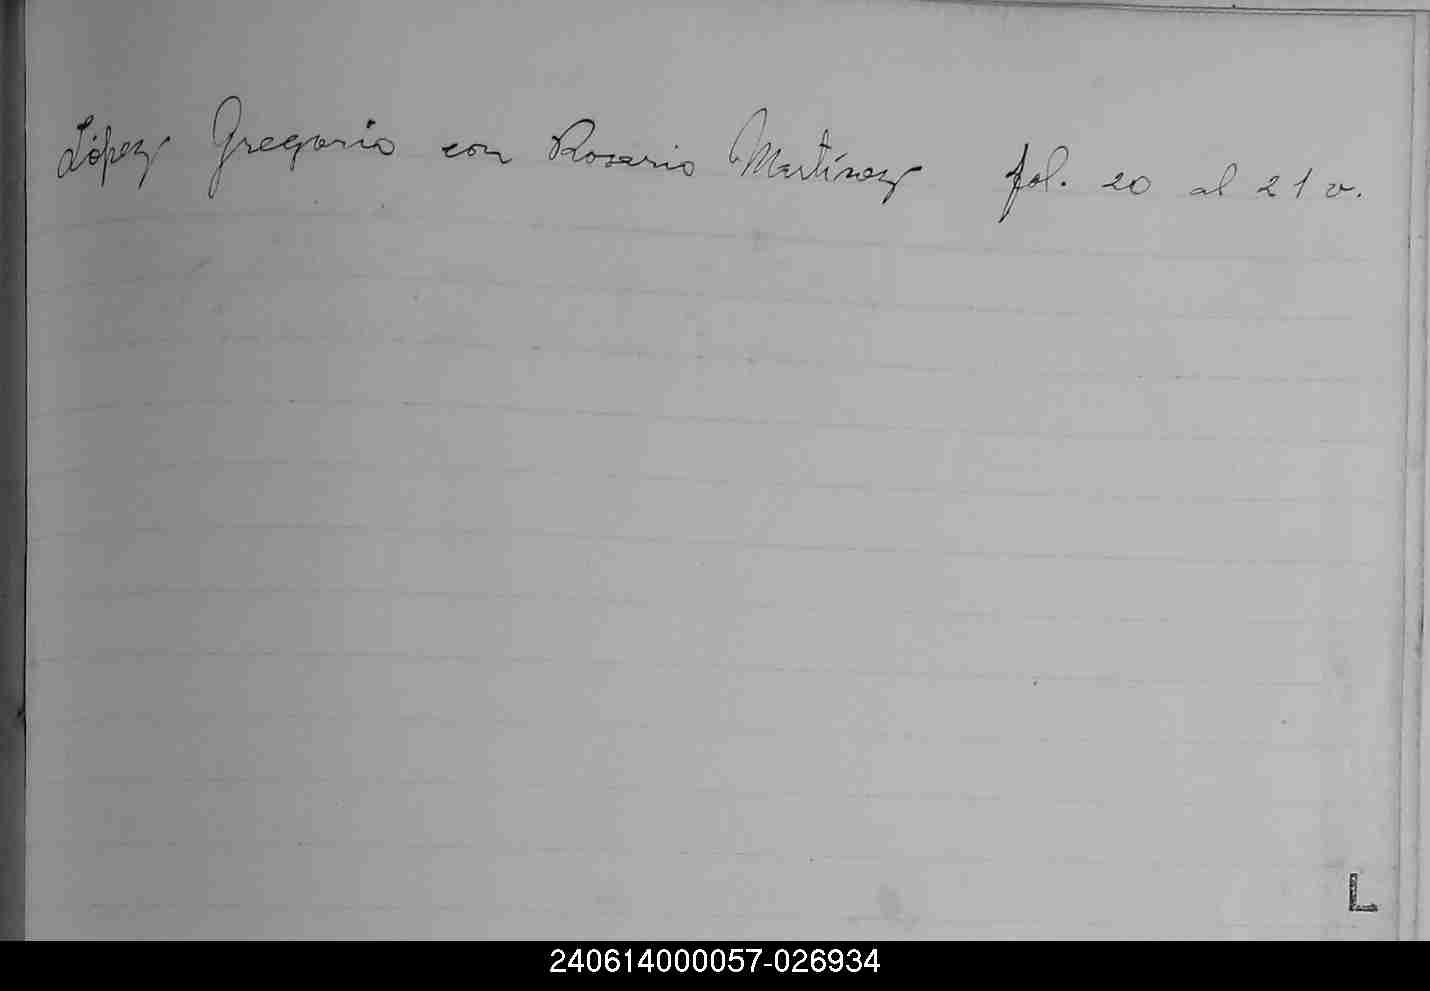 López Gregorio con Rosario Martínez fol. 20 al 21 v.
L
240614000057-026934